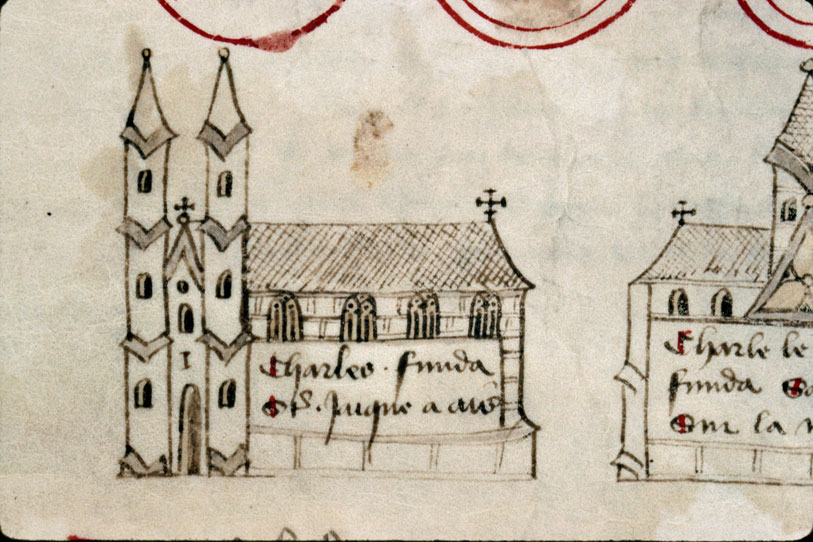 Charles · funda
St. Jaque a ais
Charle le
funda Sa
Sur la